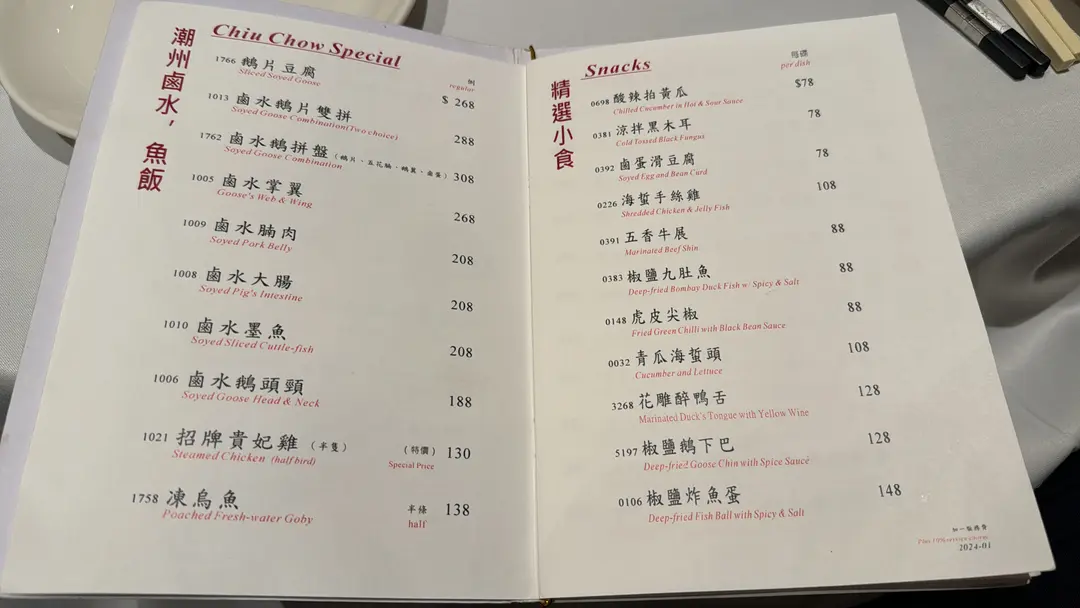 潮州鹵水，魚飯
Chiu Chow Special
例
regular
1766 鵝片豆腐 $ 268
Sliced Soyed Goose
1013 鹵水鵝片雙拼 288
Soyed Goose Combination(Two choice)
1762 鹵水鵝拼盤 308
Soyed Goose Combination
1005 鹵水掌翼 268
Goose's Web & Wing
1009 鹵水腩肉 208
Soyed Pork Belly
1008 鹵水大腸 208
Soyed Pig's Intestine
1010 鹵水墨魚 208
Soyed Sliced Cuttle-fish
1006 鹵水鵝頭頸 188
Soyed Goose Head & Neck
1021 招牌貴妃雞（半隻） （特價） 130
Steamed Chicken (half bird) Special Price
1758 凍烏魚 半條 138
Poached Fresh-water Goby half
精選小食
Snacks
每碟
per dish
0698 酸辣拍黃瓜 $78
Chilled Cucumber in Hot & Sour Sauce
0381 涼拌黑木耳 78
Cold Tossed Black Fungus
0392 鹵蛋滑豆腐 78
Soyed Egg and Bean Curd
0226 海蜇手絲雞 108
Shredded Chicken & Jelly Fish
0391 五香牛展 88
Marinated Beef Shin
0383 椒鹽九肚魚 88
Deep-fried Bombay Duck Fish w/ Spicy & Salt
0148 虎皮尖椒 88
Fried Green Chilli with Black Bean Sauce
0032 青瓜海蜇頭 108
Cucumber and Lettuce
3268 花雕醉鴨舌 128
Marinated Duck's Tongue with Yellow Wine
5197 椒鹽鵝下巴 128
Deep-fried Goose Chin with Spice Sauce
0106 椒鹽炸魚蛋 148
Deep-fried Fish Ball with Spicy & Salt
加一服務費
Plus 10% service charge
2024-01